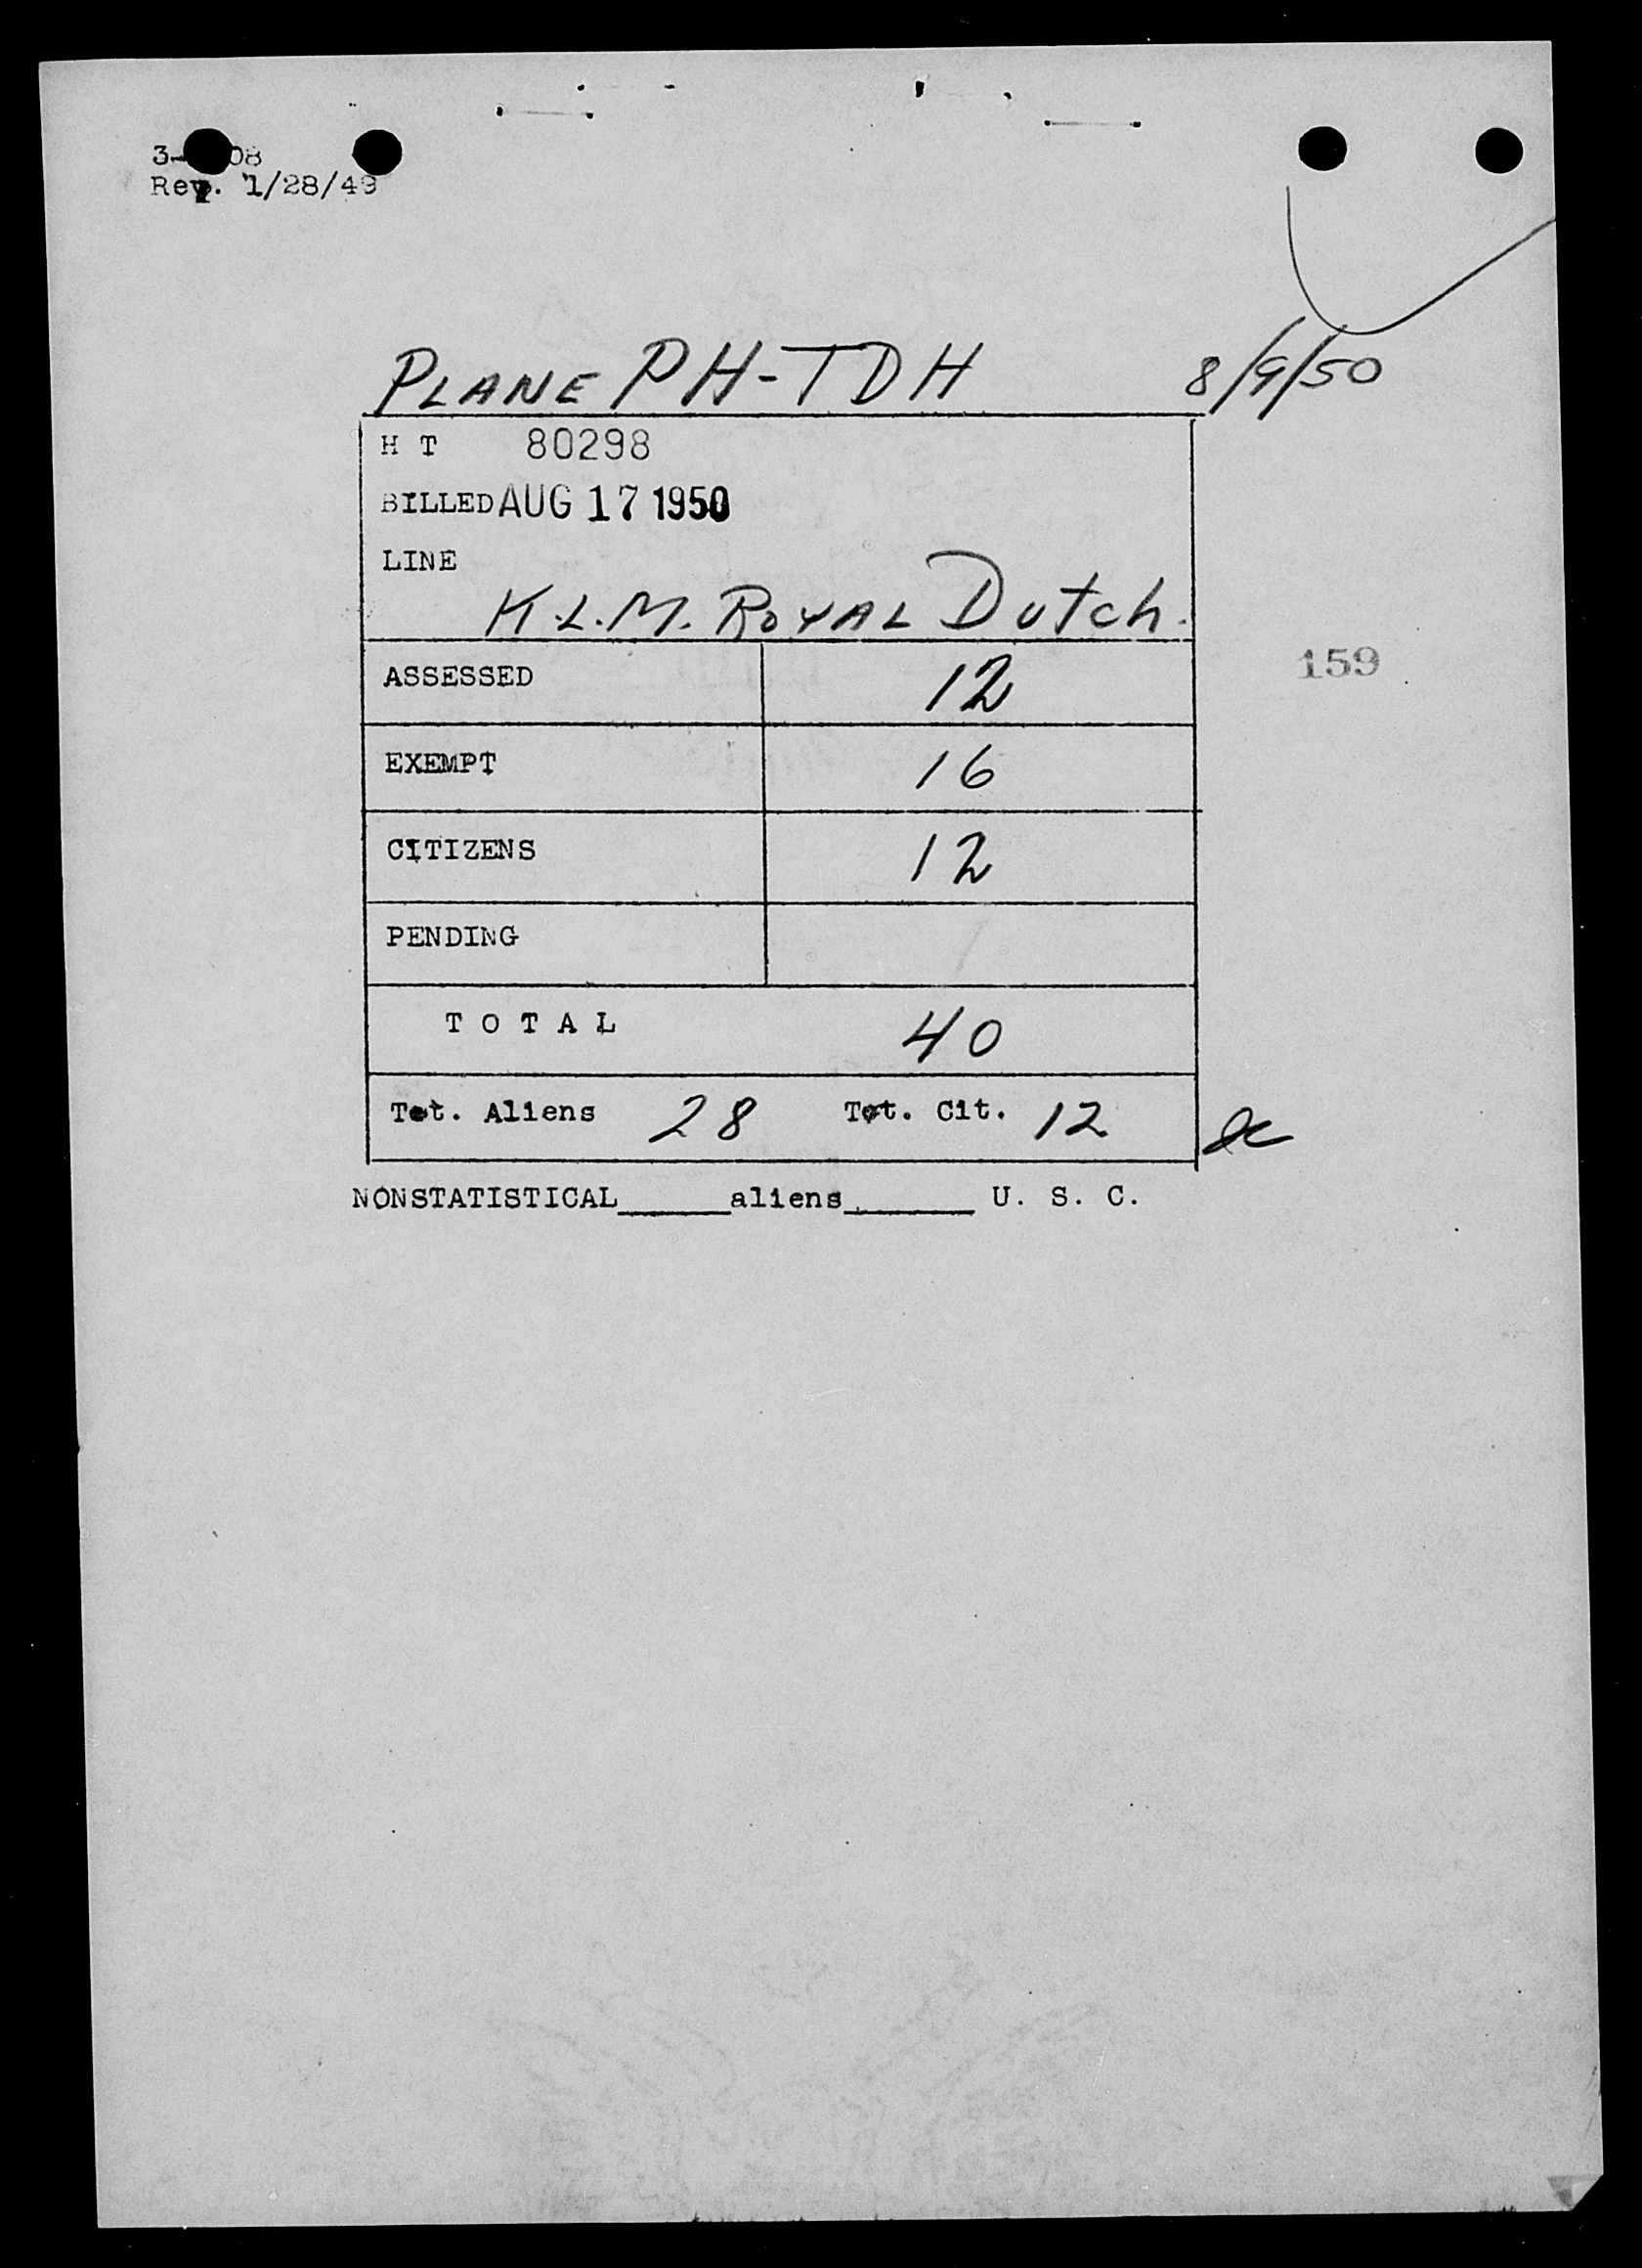 Rev. 1/28/49
PLANE PH-TDH 8/9/50
H T 80298
BILLED AUG 17 1950
LINE
K.L.M. ROYAL Dutch.
ASSESSED 12
159
EXEMPT 16
CITIZENS 12
PENDING
T O T A L 40
Tot. Aliens 28 Tot. Cit. 12
NONSTATISTICAL______aliens_______ U. S. C.